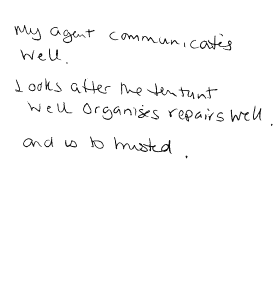 My agent communicates
well.
Looks after the tentant
well organises repairs well.
and is to trusted.